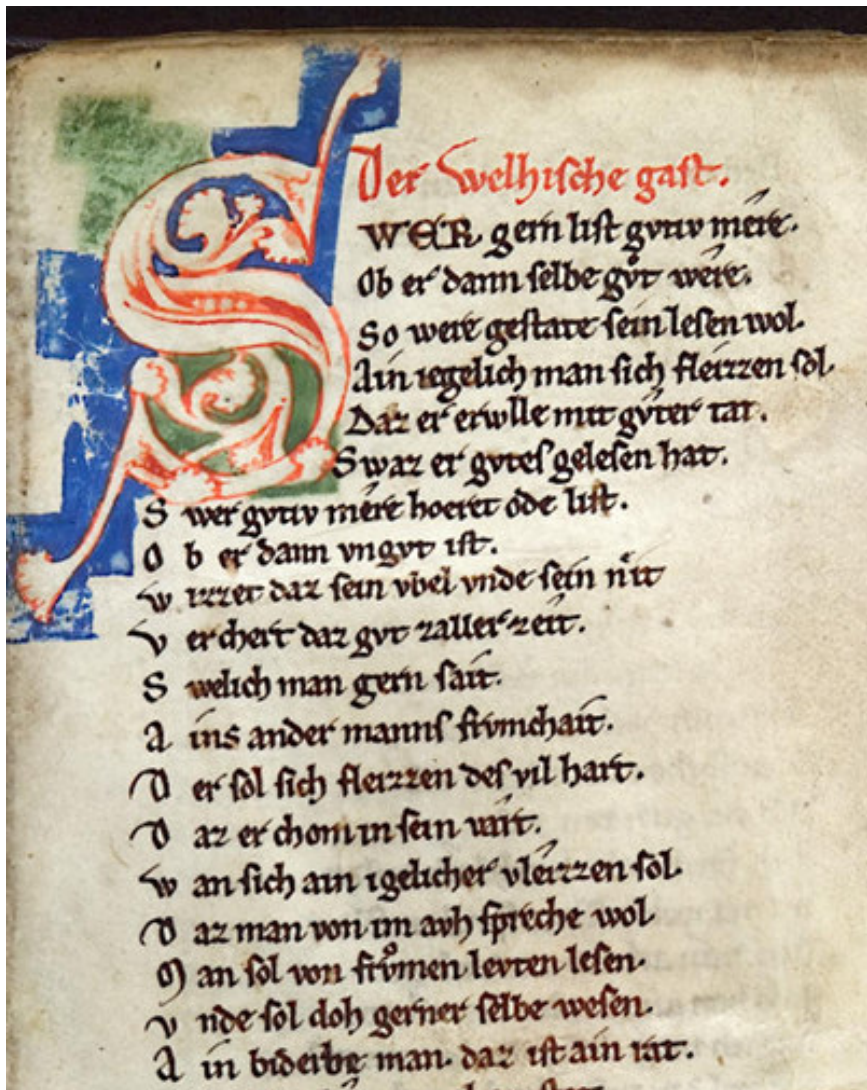 Der welhische gast.
SWER gern list gvtiv mêre.
Ob er dann selbe gůt wêre.
So were gestate sein lesen wol.
Ain iegelich man sich fleizzen sol.
Daz er ervlle mit gůter tat.
Swaz er gvtes gelesen hat.
Swer gvtiv mêre hoeret ode list.
Ob er dann vngvt ist.
wizzet daz sein vbel vnde sein nît
Verchert daz gvt zaller zeit.
Swelich man gern sait.
Ains ander manns frvmchait.
Der sol sich fleizzen des vil hart.
Daz er chom in sein vart.
wan sich ain igelicher vleizzen sol.
Daz man von im avh spreche wol
Man sol von frůmen levten lesen.
Vnde sol doh gerner selbe wesen.
Ain biderbe man. daz ist ain rat.